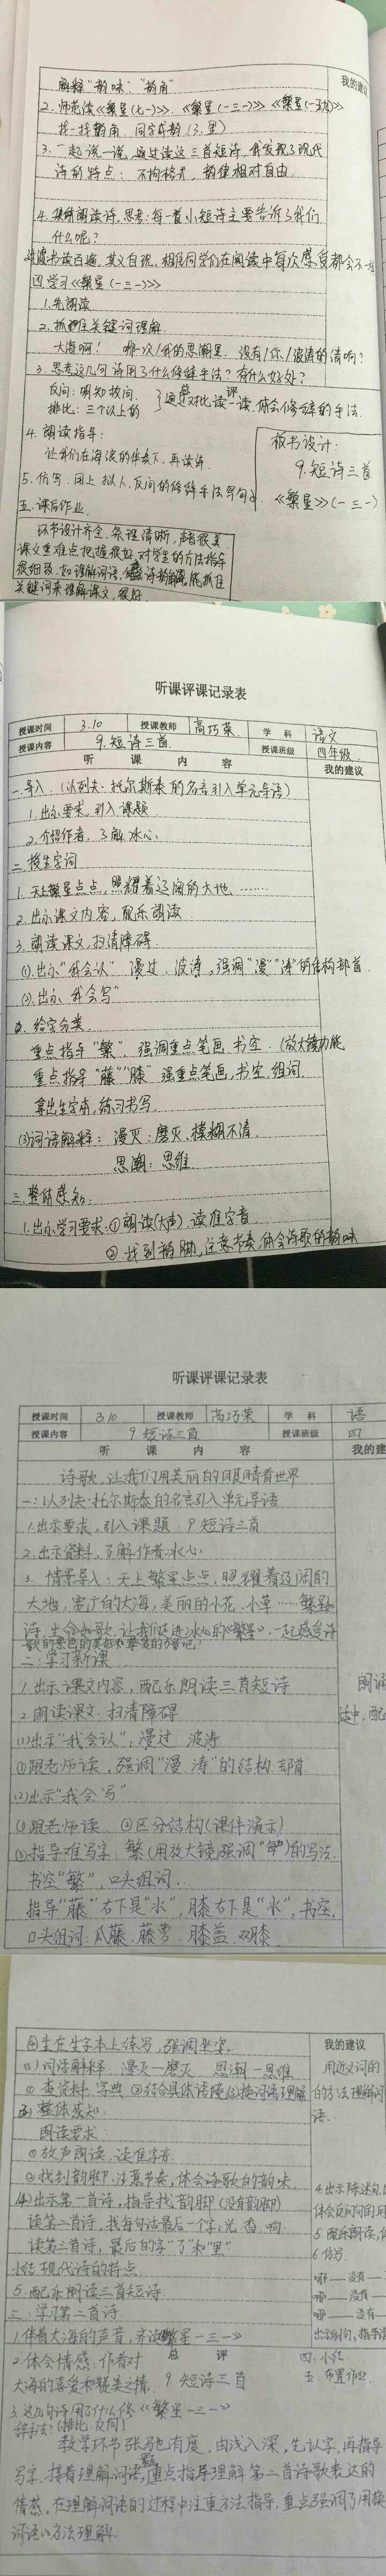 解释“韵味”“韵角”
我的建议
2. 师范读《繁星(七一)》《繁星(一三一)》《繁星(一五九)》
找一找韵角
3. 一起说一说,通过读这三首短诗,我发现了现代
诗的特点:不拘格式,韵律相对自由.
4. 朗读诗,思考:每一首小短诗主要告诉了我们
什么呢?
读书百遍,其义自现,相信同学们在阅读中每次感受都会不一样
四 学习《繁星(一三一)》
1. 先朗读
2. 抓住关键词理解
大海啊! 哪一次我的思潮里 没有你波涛的清响?
3. 思考这几句诗用了什么修辞手法?有什么好处?
反问:明知故问.
排比:三个以上的
通过对比读一读,体会修辞的手法.
4. 朗读指导:
让我们在海浪的伴奏下,再读诗.
5. 仿写 用上拟人,反问的修辞手法写句子
五. 课后作业.
板书设计:
9. 短诗三首
《繁星》(一三一)
总
评
环节设计齐全,条理清晰,声音很美.
课文重难点把握很好,对学生的方法指导
很细致,如理解词语,能抓住
关键词来理解课文,很好.
听课评课记录表
授课时间 3.10 授课教师 高巧荣 学科 语文
授课内容 9. 短诗三首 授课班级 四年级
听 课 内 容 我的建议
一.导入.(以列夫·托尔斯泰的名言引入单元导语)
1. 出示要求,引入课题
2. 介绍作者,了解冰心.
二.生字词
1. 天上繁星点点,照耀着辽阔的大地.……
2. 出示课文内容,配乐朗读
3. 朗读课文,扫清障碍.
①.出示“我会认” 漫过.波涛,强调“漫”“涛”的结构部首.
②.出示“我会写”
给字分类.
重点指导“繁”.强调重点笔画,书空.(放大镜功能
重点指导“藤”“膝”强重点笔画,书空,组词.
拿出生字本,练习书写.
(3)词语解释:漫灭:磨灭.模糊不清.
思潮:思维
三.整体感知.
1.出示学习要求:①朗读(大声)读准字音.
②.找到韵脚,注意节奏,体会诗歌的韵味
听课评课记录表
授课时间 3.10 授课教师 高巧荣 学科 语
授课内容 9 短诗三首 授课班级 四
听 课 内 容 我的建
诗歌,让我们用美丽的眼睛看世界
一:以列夫·托尔斯泰的名言引入单元导语
1.出示要求,引入课题:9短诗三首
2. 出示资料,了解作者冰心.
3. 情景导入:天上繁星点点,照耀着辽阔的
大地,宽广的大海,美丽的小花、小草……
诗,生命如歌,让我们走进冰心的《繁星》,一起感受诗
二:学习新课
1.出示课文内容,配乐朗读三首短诗
2. 朗读课文.扫清障碍
(1)出示“我会认”,漫过 波涛
①跟老师读,强调“漫、涛”的结构.部首
(2)出示“我会写”
①跟老师读 ②区分结构(课件演示)
③指导难写字 繁(用放大镜强调“”)的写法.
书空“繁”,口头组词.
指导“藤”右下是“水”,膝右下是“水”,书空,
口头组词:瓜藤.藤萝.膝盖.双膝
④生在生字本上练写,强调坐姿.
我的建议
词语解释 漫灭—磨灭 思潮—思维
查资料.字典 ②结合具体语境 ③换词语理解
用近义词的
的方法理解词
语.
整体感知
阅读要求:
①放声朗读,读准字音
②找到韵脚,注意节奏,体会诗歌的韵味.
(4)出示第一首诗,指导找韵脚(没有韵脚)
读第二首诗,找每句话最后一个字,光 香 响
读第三首诗,最后的字“了”和“里”
小结 现代诗的特点
5. 配乐朗读三首短诗
4.出示陈述句,
体会反问句的
5. 配乐朗读,
6. 仿写.
哪—没有—
哪—没有—
哪—没有—
出示例句,指导
三:学习第二首诗
1.伴着大海的声音,齐读繁星一三一
2. 体会情感:作者对
大海的喜爱和赞美之情.
总 评
9 短诗三首
《繁星一三一》
四:小结
五:布置作业.
3. 这几句诗用了什么修
辞手法?(排比.反问)
教学环节张弛有度,由浅入深,先认字,再指导
写字,接着理解词语,重点指导理解第二首诗歌表达的
情感,在理解词语的过程中注重方法指导,重点强调了用换
词语的方法理解.